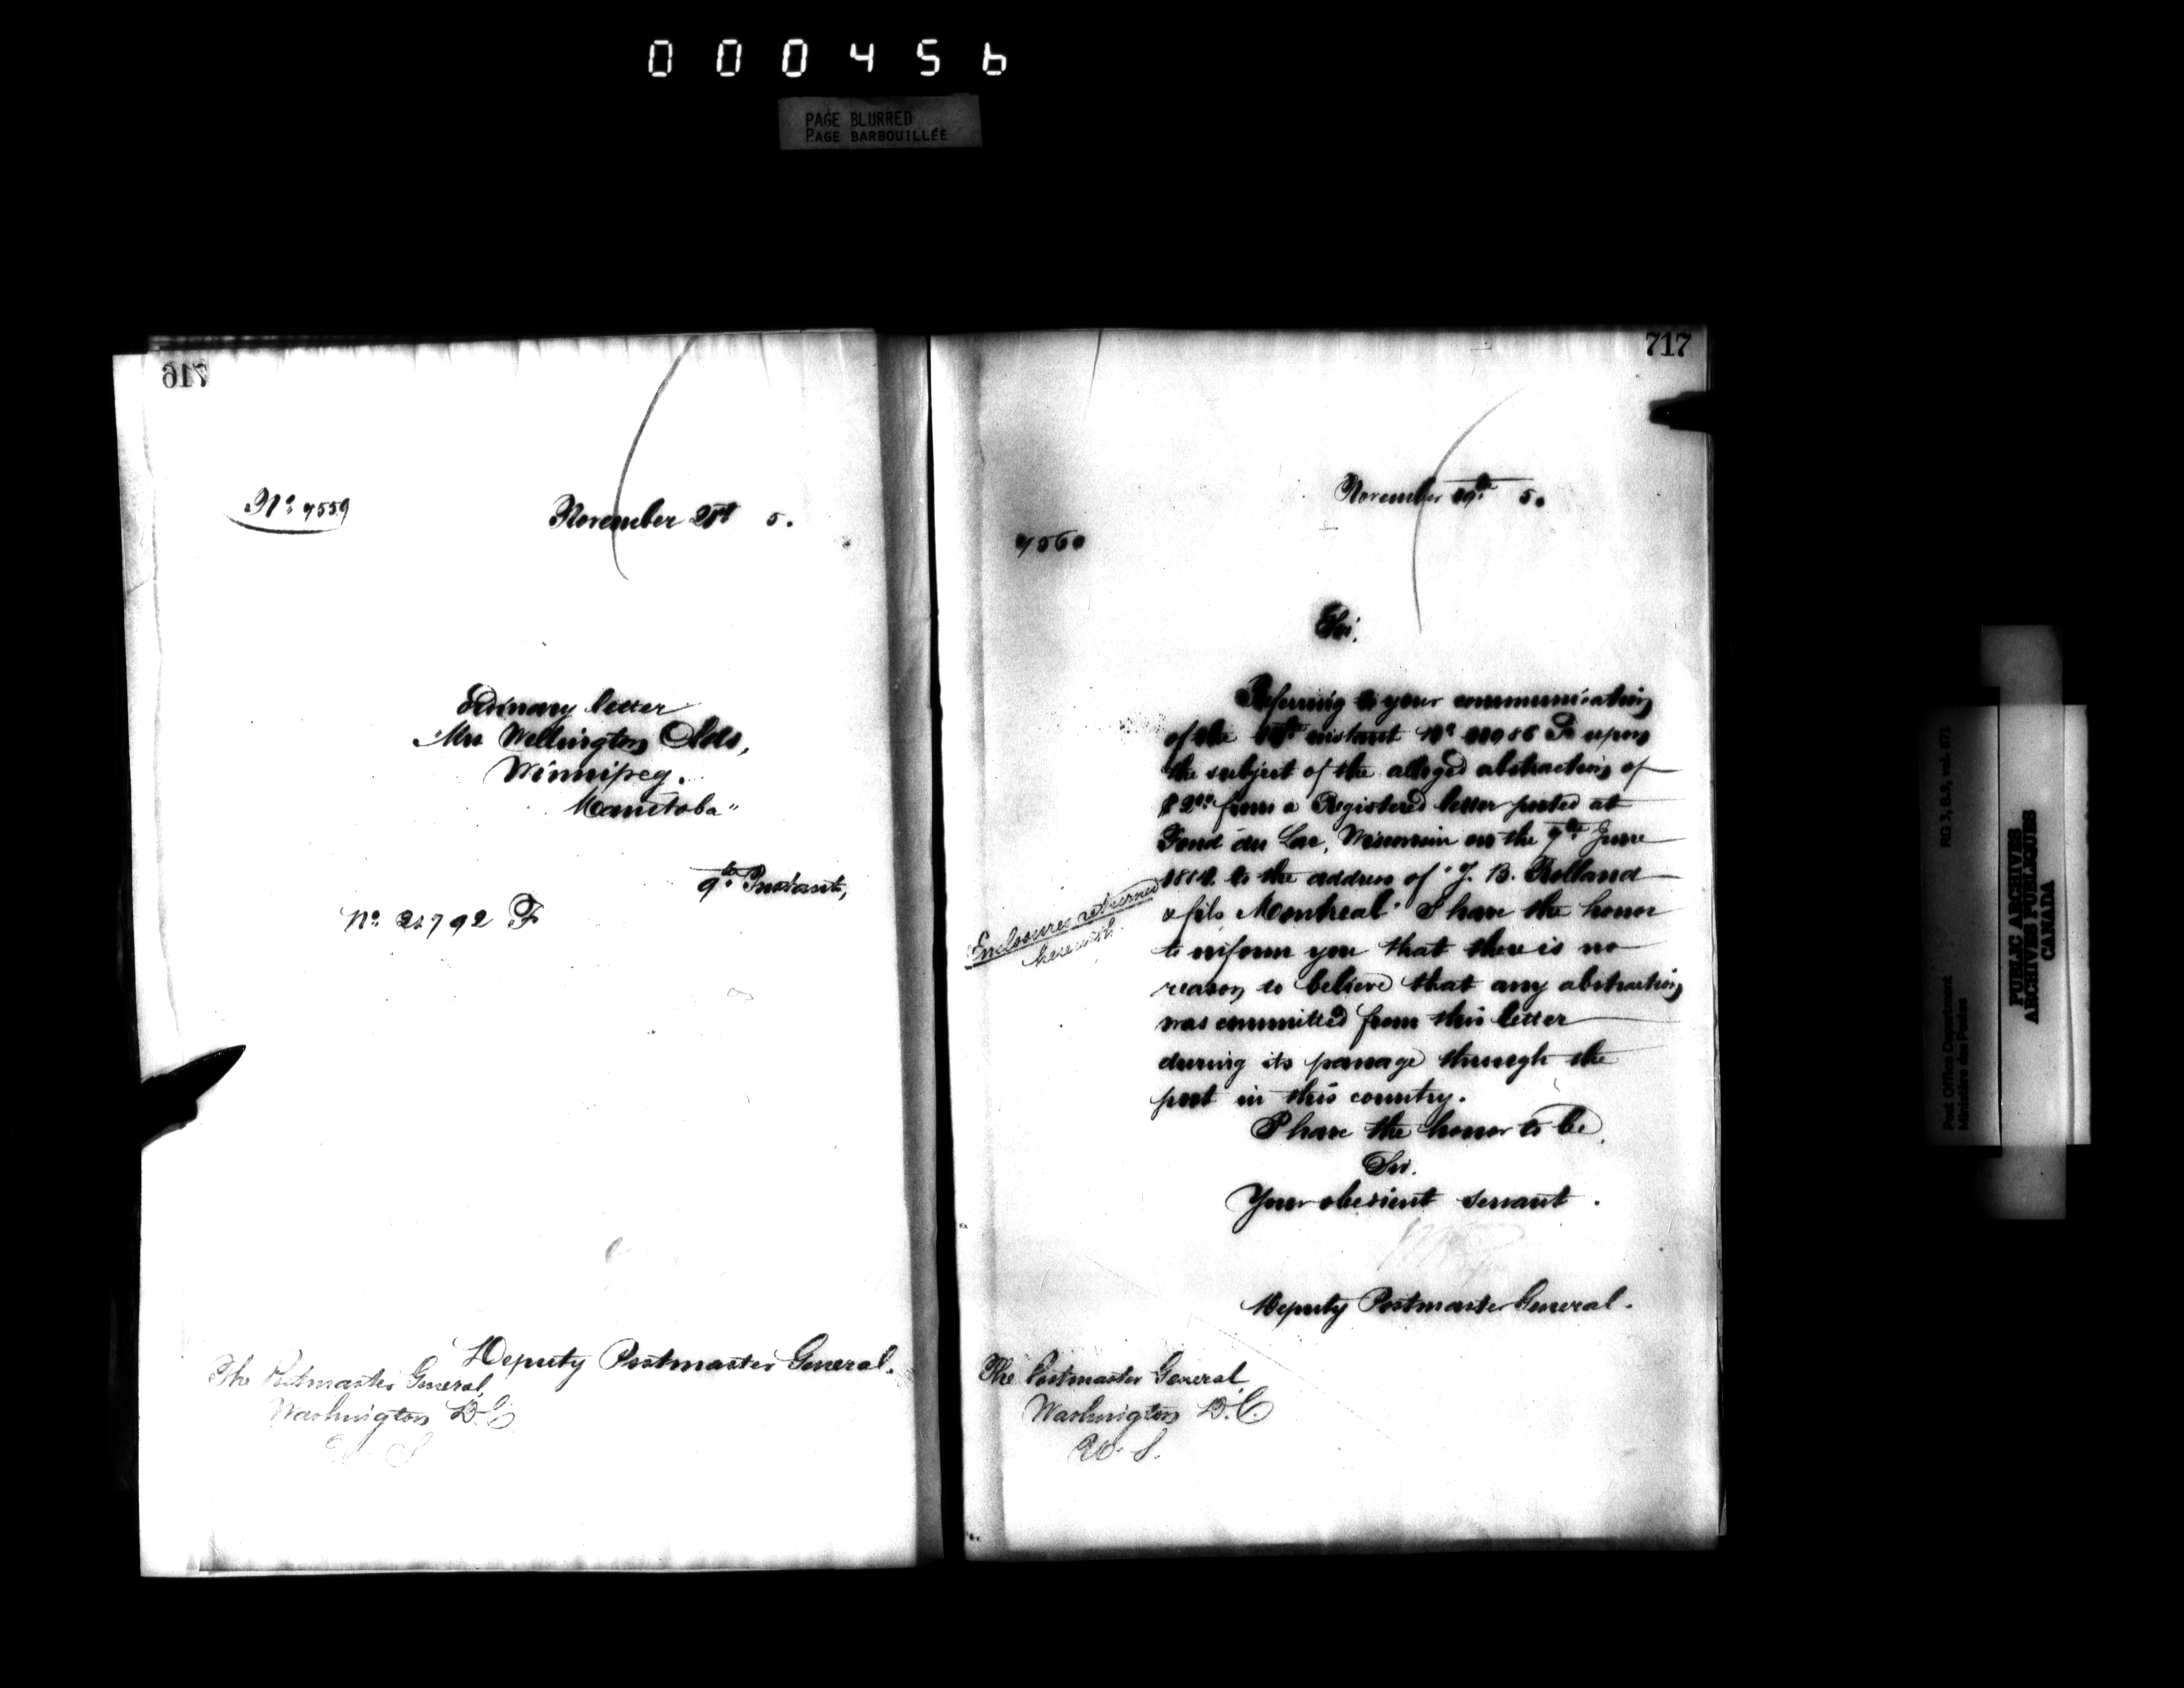 000456
PAGE BLURRED
PAGE BARBOUILLÉE
716
No 7559
November 21st 5.
Ordinary letter
Mrs Wellington Olds,
Winnipeg.
Manitoba"
9th Instant,
No 21792 F
Deputy Postmaster General.
The Postmaster General,
Washington D.C
U. S
717
November 5.
7560
Sir.
Referring to your communication
of the instant No F upon
the subject of the alleged abstraction of
from a Registered letter posted at
Fond du Lac, Wisconsin on the 9th June
to the address of "J. B. Rolland
& fils Montreal" I have the honor
to inform you that there is no
reason to believe that any abstraction
was committed from this letter
during its passage through the
post in this country.
Enclosures returned
herewith.
I have the honor to be,
Sir.
Your obedient servant.
Deputy Postmaster General.
The Postmaster General,
Washington D.C.
U. S.
Post Office Department
Ministère des Postes
RG 3, B.9, vol. 671
PUBLIC ARCHIVES
ARCHIVES PUBLIQUES
CANADA